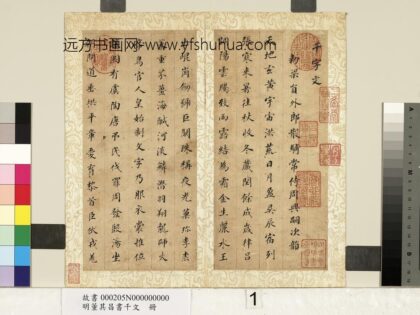 远方书画网-www.yfshuhua.com
千字文
勑梁員外郎散騎常侍周興嗣次韵
天地玄黃宇宙洪荒日月盈昃辰宿列
張寒來暑往秋收冬藏閏餘成歲律呂
調陽雲騰致雨露結為霜金生麗水玉
出崑岡劍號巨闕珠稱夜光菓珍李柰
菜重芥薑海鹹河淡鱗潛羽翔龍師火
帝鳥官人皇始制文字乃服衣裳推位
讓國有虞陶唐弔民伐罪周發殷湯坐
朝問道垂拱平章愛育黎首臣伏戎羌
故書 000205N000000000
明董其昌書千文 冊
1